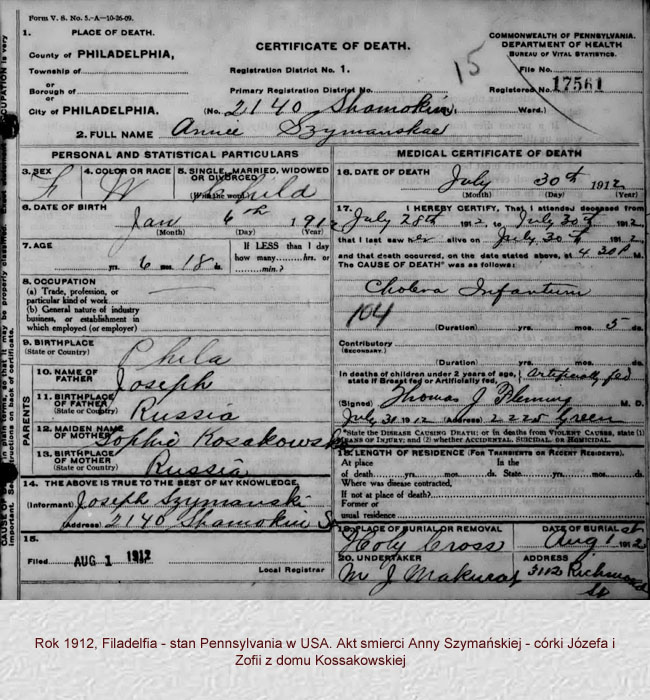 Form V. S. No. 5.-A-10-26-09.
1. PLACE OF DEATH.
County of PHILADELPHIA,
Township of
or
Borough of
or
City of PHILADELPHIA.
CERTIFICATE OF DEATH.
Registration District No. 1.
Primary Registration District No.
(No. 2140 Shamokin; Ward.)
15
COMMONWEALTH OF PENNSYLVANIA.
DEPARTMENT OF HEALTH
BUREAU OF VITAL STATISTICS.
File No.
Registered No. 17561
2. FULL NAME Annee Szymanskae
PERSONAL AND STATISTICAL PARTICULARS
3. SEX F
4. COLOR OR RACE W
5. SINGLE, MARRIED, WIDOWED OR DIVORCED
(Write the word) child
6. DATE OF BIRTH
Jan 6th 1912
(Month) (Day) (Year)
7. AGE
yrs. 6 mos. 18 ds.
If LESS than 1 day
how many hrs. or
min.?
8. OCCUPATION
(a) Trade, profession, or
particular kind of work
(b) General nature of industry
business, or establishment in
which employed (or employer)
9. BIRTHPLACE
(State or Country) Phila
PARENTS
10. NAME OF
FATHER Joseph
11. BIRTHPLACE
OF FATHER
(State or Country) Russia
12. MAIDEN NAME
OF MOTHER Sophie Kosakowski
13. BIRTHPLACE
OF MOTHER
(State or Country) Russia
14. THE ABOVE IS TRUE TO THE BEST OF MY KNOWLEDGE
(Informant) Joseph Szymanski
(Address) 2140 Shamokin St
15.
Filed AUG 1 1912
Local Registrar
MEDICAL CERTIFICATE OF DEATH
16. DATE OF DEATH
July 30th 1912
(Month) (Day) (Year)
17. I HEREBY CERTIFY, That I attended deceased from
July 28th 1912 to July 30th 1912
that I last saw her alive on July 30th 1912
and that death occurred, on the date stated above, at 4 30 P M.
The CAUSE OF DEATH* was as follows:
Cholera Infantum
104
(Duration) yrs. mos. 5 ds.
Contributory
(SECONDARY.)
(Duration) yrs. mos. ds.
In deaths of children under 2 years of age,
state if Breast fed or Artificially fed, Artificially fed
(Signed) Thomas J Fleming M. D.
July 31 1912 (Address) 2225 Green
*State the DISEASE CAUSING DEATH; or in deaths from VIOLENT CAUSES, state (1)
MEANS OF INJURY; and (2) whether ACCIDENTAL, SUICIDAL, OR HOMICIDAL.
18. LENGTH OF RESIDENCE (FOR TRANSIENTS OR RECENT RESIDENTS).
At place In the
of death yrs. mos. ds. State yrs. mos. ds.
Where was disease contracted,
If not at place of death?
Former or
usual residence
19. PLACE OF BURIAL OR REMOVAL
Holy Cross
DATE OF BURIAL
Aug 1st 1912
20. UNDERTAKER
M J Makuraf
ADDRESS
3112 Richmond St
Rok 1912, Filadelfia - stan Pennsylvania w USA. Akt smierci Anny Szymańskiej - córki Józefa i
Zofii z domu Kossakowskiej